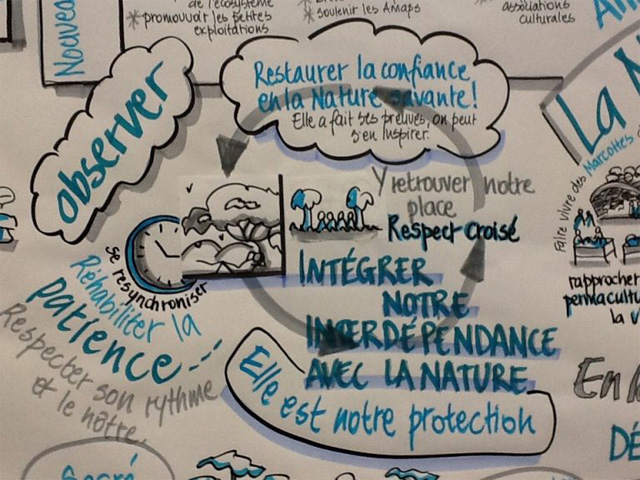 Nouveau
de l'écosystème
* promouvoir les petites
exploitations
* soutenir les Amaps
associations
culturales
observer
Restaurer la confiance
en la Nature savante!
Elle a fait ses preuves, on peut
s'en inspirer.
Y retrouver notre
place
Respect croisé
se resynchroniser
Réhabiliter la
patience...
Respecter son rythme
et le nôtre.
INTÉGRER
NOTRE
INTERDÉPENDANCE
AVEC LA NATURE
Elle est notre protection
La
Faire vivre des Marcottes
rapprocher
permacultu
la v
En
DÉ
Sacré